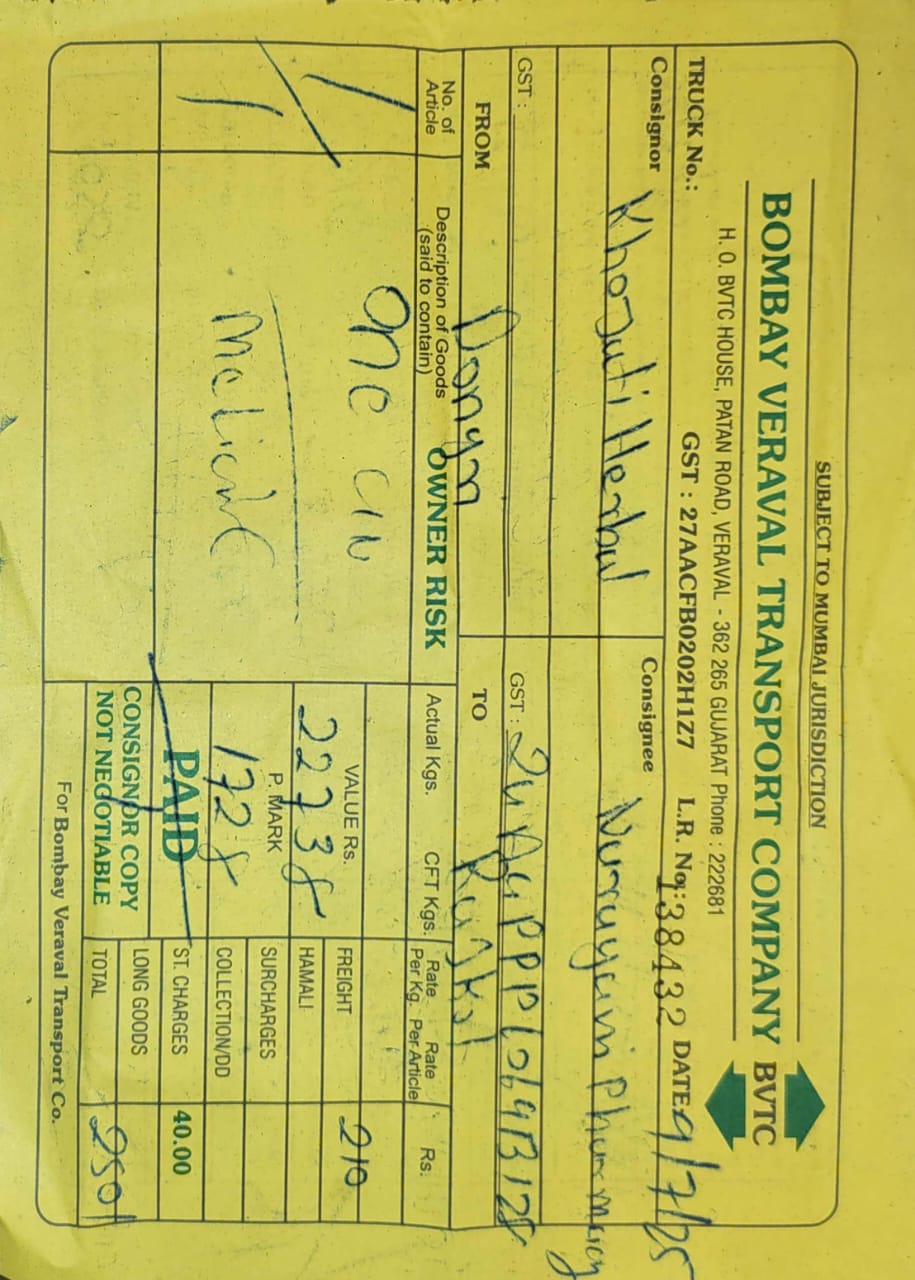 SUBJECT TO MUMBAI JURISDICTION
BOMBAY VERAVAL TRANSPORT COMPANY BVTC
H. O. BVTC HOUSE, PATAN ROAD, VERAVAL - 362 265 GUJARAT Phone : 222681
TRUCK No.: GST : 27AACFB0202H1Z7 L.R. No.: 138432 DATE: 9/7/25
Consignor Consignee
GST : GST :
FROM TO
No. of Article Description of Goods (said to contain) OWNER RISK Actual Kgs. CFT Kgs. Rate Per Kg. Rate Per Article Rs.
1 one
VALUE Rs. FREIGHT 210
22738 HAMALI
P. MARK SURCHARGES
1728 COLLECTION/DD
PAID ST. CHARGES 40.00
CONSIGNOR COPY LONG GOODS
NOT NEGOTIABLE TOTAL 250/
For Bombay Veraval Transport Co.